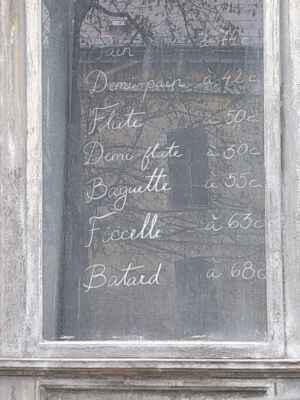 Pain
Demi-pain à 42c
Flute à 50c
Demi flute à 30c
Baguette à 55c
Ficcelle à 63c
Batard à 68c